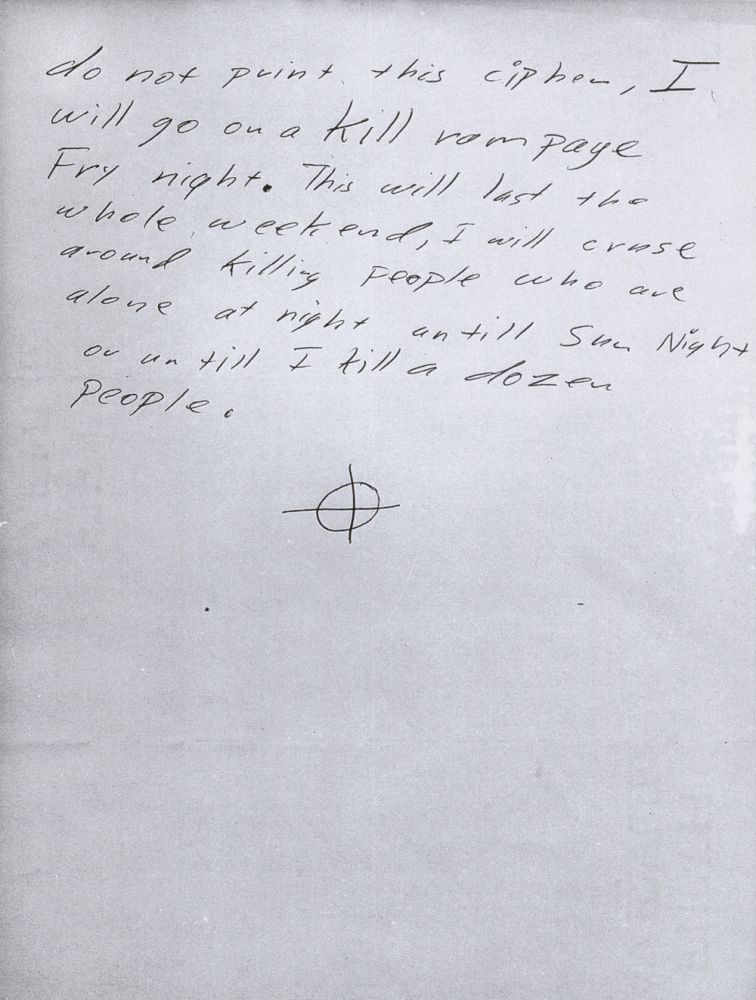 do not print this cipher, I
will go on a kill rampage
Fry night. This will last the
whole weekend, I will cruse
around killing people who are
alone at night untill Sun Night
or un till I kill a dozen
people.